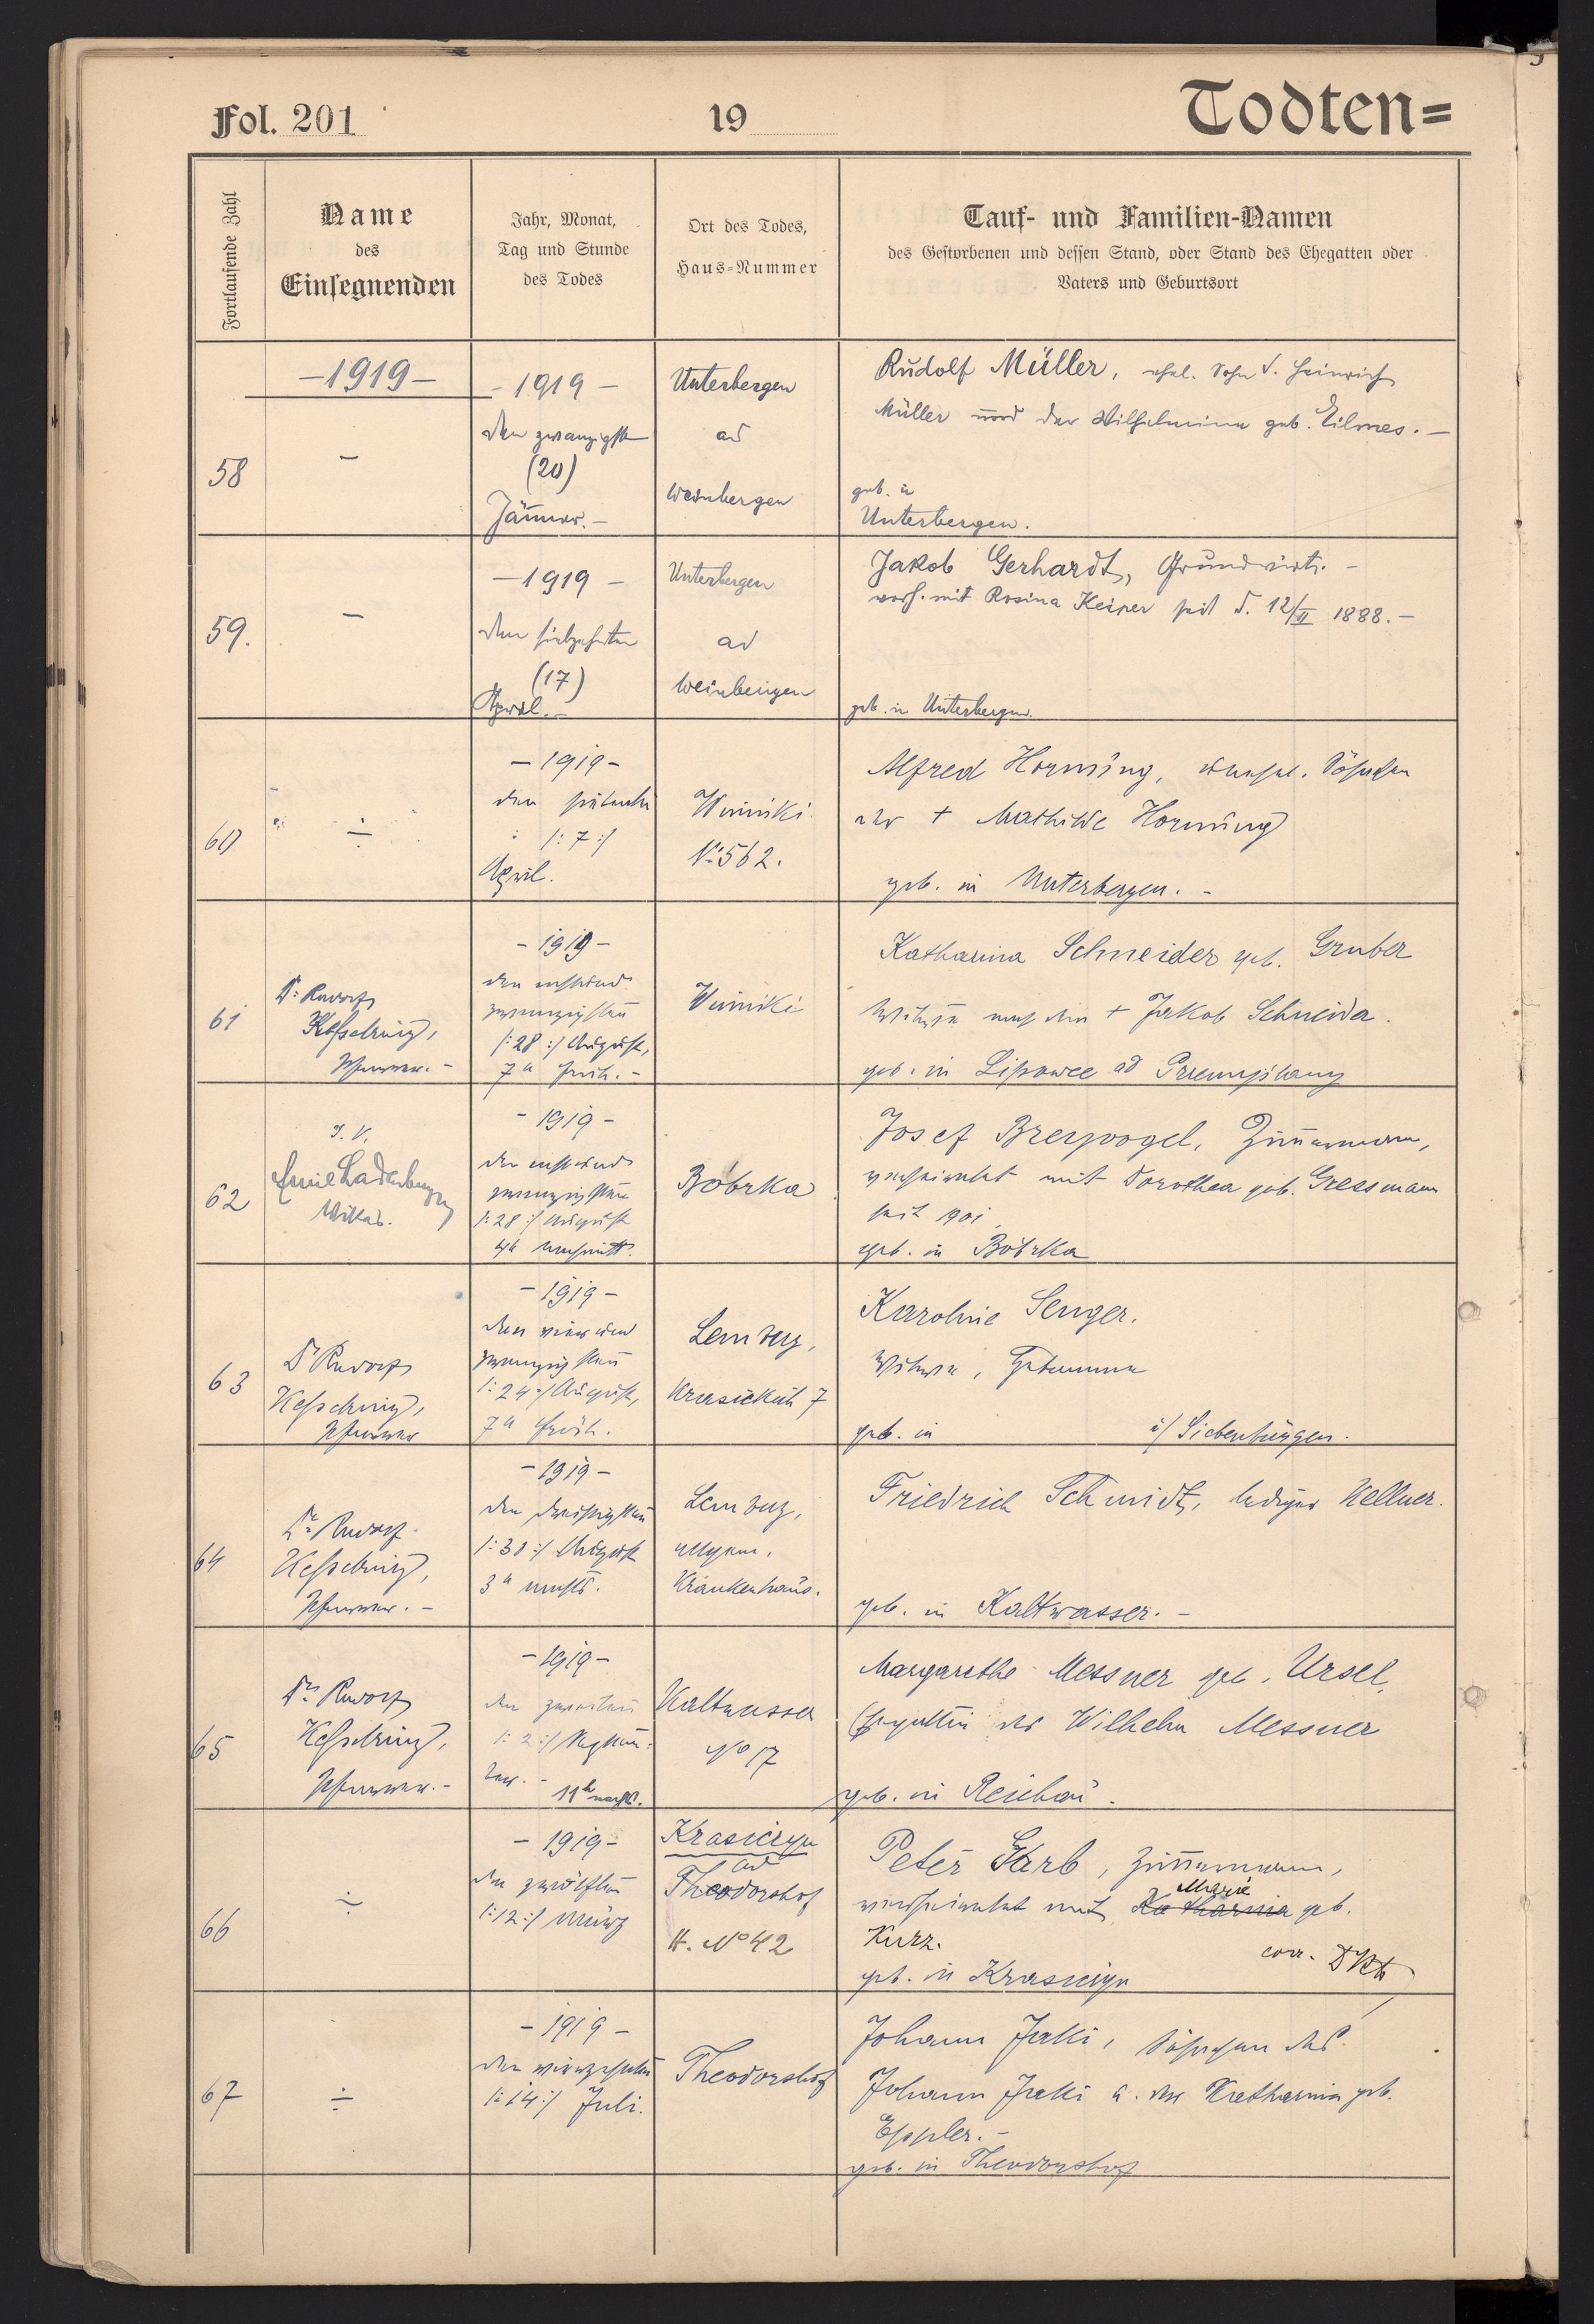 Fol. 201
19
Todten=
Fortlaufende Zahl
Name
des
Einsegnenden
Jahr, Monat,
Tag und Stunde
des Todes
Ort des Todes,
Haus-Nummer
Tauf- und Familien-Namen
des Gestorbenen und dessen Stand, oder Stand des Ehegatten oder
Vaters und Geburtsort
58
-1919-
-
- 1919 -
den zwanzigsten
(20)
Jänner. -
Unterbergen
ad
Weinbergen
Rudolf Müller, ehel. Sohn d. Heinrich
Müller und der Wilhelmine geb. Eilmes. -
geb. in
Unterbergen.
59.
-
- 1919 -
den siebzehnten
(17)
April. -
Unterbergen
ad
Weinbergen
Jakob Gerhardt, Grundwirth. -
verh. mit Rosina Keiper seit d. 12/II 1888. -
geb. in Unterbergen.
60
÷
- 1919 -
den siebenten
/: 7 :/
April.
Winniki
No 562.
Alfred Hornung, unehel. Söhnchen
der + Mathilde Hornung
geb. in Unterbergen. -
61
Dr. Rudolf
Kesselring,
Pfarrer. -
- 1919 -
den achtund
zwanzigsten
/: 28 :/ August,
7 h früh. -
Winniki
Katharina Schneider geb. Gruber
Witwe nach dem + Jakob Schneider.
geb. in Lipowce ad Przemyslany
62
I. V.
Emil Ladenberger
Vikar.
- 1919 -
den achtund
zwanzigsten
/: 28 :/ August
4h nachmitt.
Bóbrka
Josef Breyvogel, Zimmermann,
verheiratet mit Dorothea geb. Gressmann
seit 1901
geb. in Bóbrka
63
Dr. Rudolf
Kesselring,
Pfarrer
- 1919 -
den vierund
zwanzigsten
/: 24 :/ August,
7 h früh.
Lemberg,
7
Karoline Senger,
Witwe, Hebamme
geb. in i/ Siebenbürgen.
64
Dr. Rudolf
Kesselring,
Pfarrer. -
- 1919 -
den dreissigsten
/: 30 :/ August
3 h nachts.
Lemberg,
allgem.
Krankenhaus.
Friedrich Schmidt, lediger Kellner.
geb. in Kaltwasser. -
65
Dr. Rudolf
Kesselring,
Pfarrer. -
- 1919 -
den zweiten
/: 2 :/ Septem-
ber. -
11h nachts.
Kaltwasser
No 17
Margarethe Messner geb. Ursel,
Ehegattin des Wilhelm Messner
geb. in Reichau.
66
÷
- 1919 -
den zwölften
/: 12 :/ März
Krasiczyn
ad
Theodorshof
H. No 42
Peter Garb, Zimmermann,
verheiratet mit Katharina Marie geb.
Kurz.
corr.
geb. in Krasiczyn
67
÷
- 1919 -
den vierzehnten
/: 14 :/ Juli.
Theodorshof
Johann Jaki, Söhnchen des
Johann Jaki u. der Katharina geb.
Eppler. -
geb. in Theodorshof